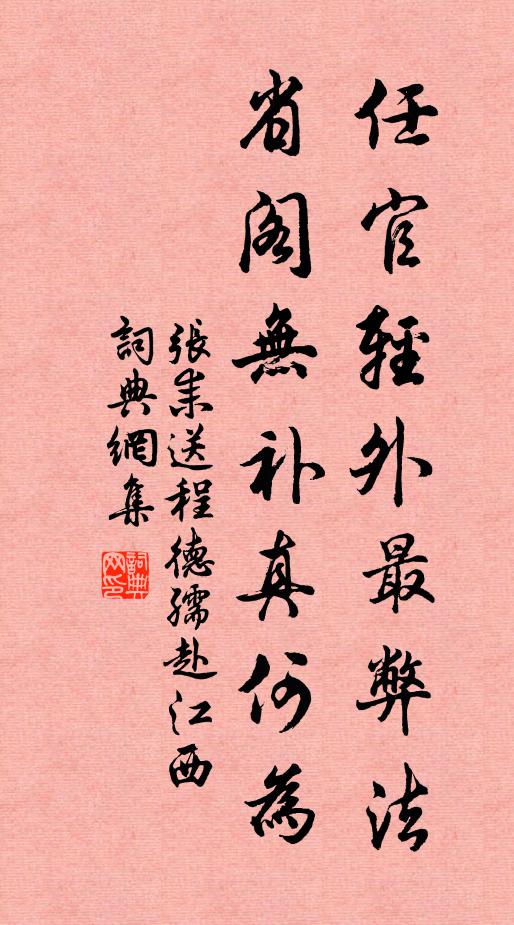 任官輕外最弊法
省阁無补真何為
張耒送程德孺赴江西
詞典網集
詞典網印